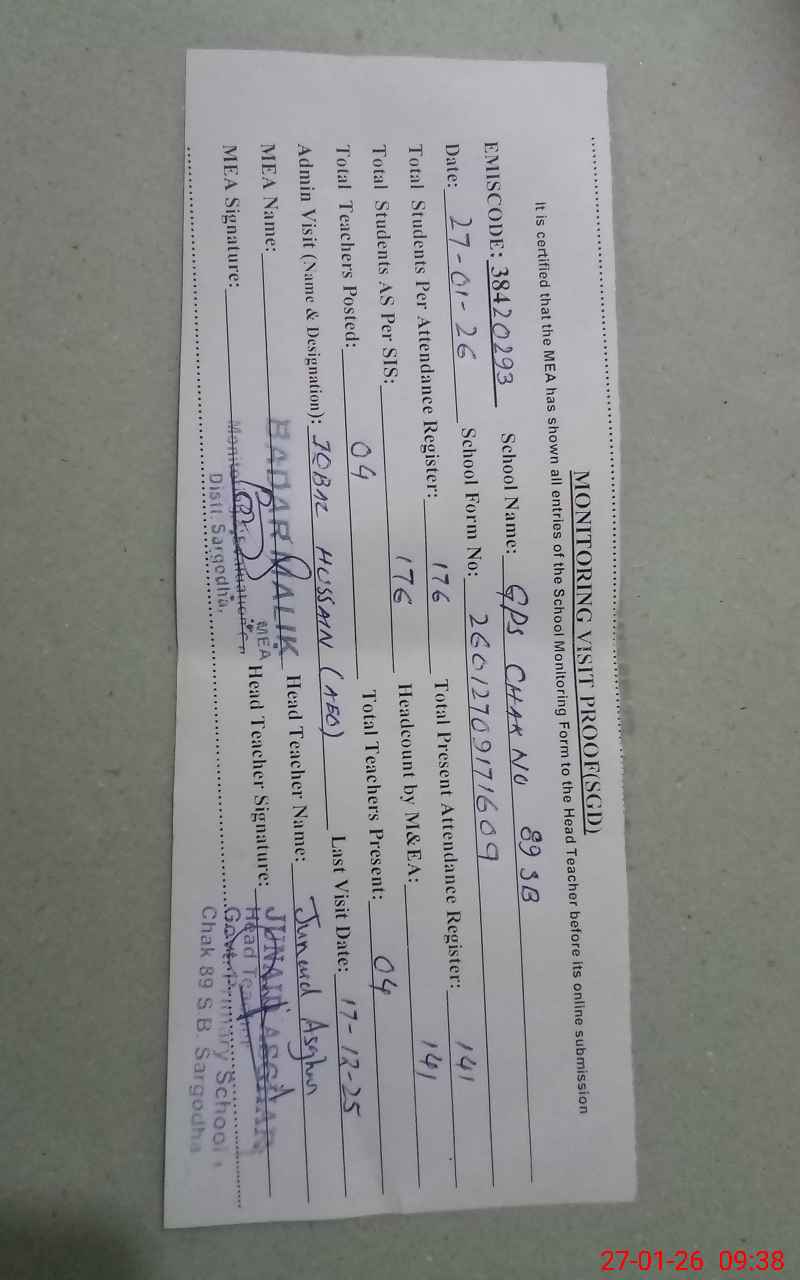 MONITORING VISIT PROOF(SGD)
It is certified that the MEA has shown all entries of the School Monitoring Form to the Head Teacher before its online submission
EMISCODE: 38420293 School Name: GPS CHAK NO 89 SB
Date: 27-01-26 School Form No: 26012709171609
Total Students Per Attendance Register: 176 Total Present Attendance Register: 141
Total Students AS Per SIS: 176 Headcount by M&EA: 141
Total Teachers Posted: 04 Total Teachers Present: 04
Admin Visit (Name & Designation): IQBAL HUSSAIN (AEO) Last Visit Date: 17-12-25
MEA Name: BADAR MALIK Head Teacher Name: Junaid Asghar
MEA Signature: MEA Head Teacher Signature: JUNAID ASGHAR
Distt. Sargodha. Head Teacher
Govt. Primary School,
Chak 89 S.B. Sargodha
27-01-26 09:38